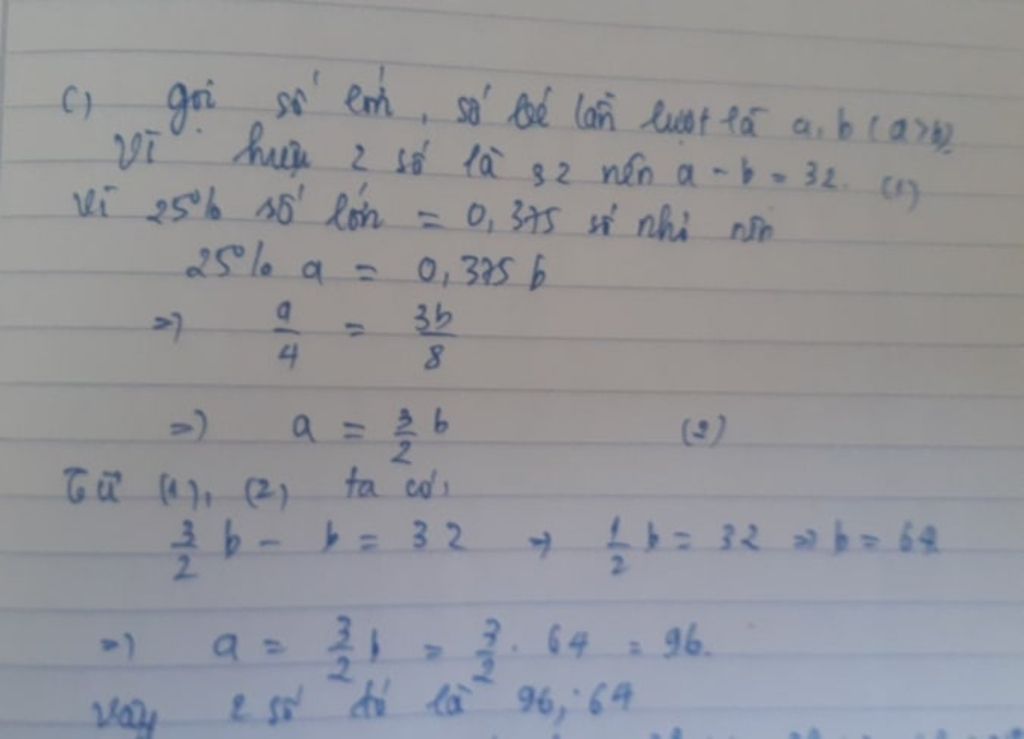 c) gọi số lớn, số bé lần lượt là a, b (a>b).
Vì hiệu 2 số là 32 nên a - b = 32. (1)
Vì 25% số lớn = 0,375 số nhỏ nên
25% a = 0,375 b
=> a/4 = 3b/8
=> a = 3/2 b (2)
Từ (1), (2) ta có:
3/2 b - b = 32 → 1/2 b = 32 => b = 64
=> a = 3/2 b = 3/2 . 64 = 96.
Vậy 2 số đó là 96; 64